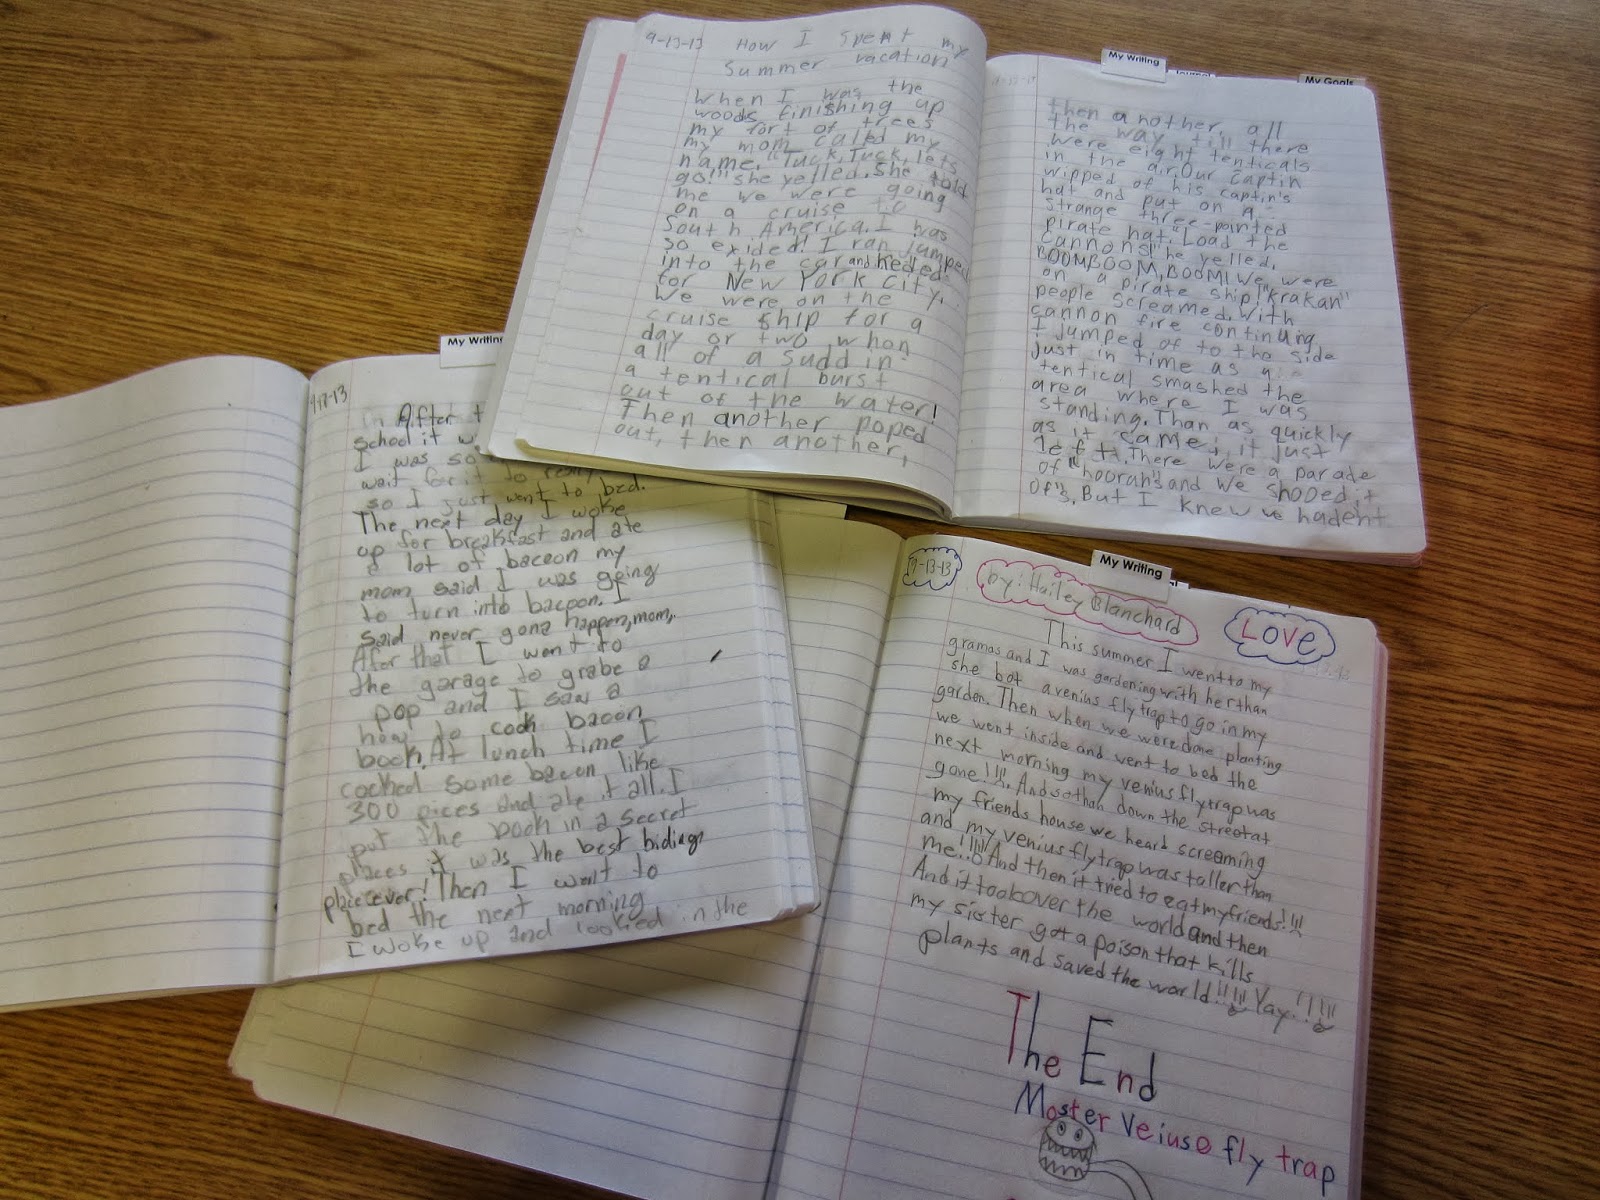 9-13-13 How I Spent my
Summer vacation
When I was the
woods finishing up
my fort of trees
my mom calld my
name. "Tuck, Tuck, lets
go!" she yelled. She told
me we were going
on a cruise to
South America. I was
so exided! I ran jumped
into the car and heded
for New York City.
We were on the
cruise ship for a
day or two whan
all of a suddin
a tentical burst
out of the water!
Then another poped
out, then another,
My Writing
My Goals
then another, all
the way till there
were eight tenticals
in the air. Our captin
wipped of his captin's
hat and put on a
strange three-pointed
pirate hat. "Load the
cannons!" he yelled.
BOOM BOOM, BOOM! We were
on a pirate ship! "Krakan"
people screamed. With
cannon fire continuing
I jumped of to the side
just in time as a
tentical smashed the
area where I was
standing. Than as quickly
as it came, it just
left. There were a parade
of "hoorah's and we shooed it
of's. But I knew we hadent
My Writing
After
school it
I was so
wait for it to really
so I just went to bed.
The next day I woke
up for breakfast and ate
a lot of bacoon my
mom said I was going
to turn into bacoon. I
said never gona happen, mom,.
After that I went to
the garage to grabe a
pop and I saw a
how to cook bacon
book. At lunch time I
cocked some bacon like
300 pices and ate it all. I
put the book in a secret
places it was the best biding
place ever! Then I went to
bed the next morning
I woke up and looked in the
My Writing
9-13-13 by: Hailey Blanchard LOVE
This summer I went to my
gramas and I was gardening with her than
she bot a venius fly trap to go in my
garden. Then when we were done planting
we went inside and went to bed the
next morning my venius flytrap was
gone!!!!. And so than down the street at
my friends house we heard screaming
and my venius flytrap was taller than
me..!!!! And then it tried to eat my friends!!!!
And it took over the world and then
my sister got a poison that kills
plants and saved the world!!!!! Yay!!!!!
The End
Moster Veiuse fly trap